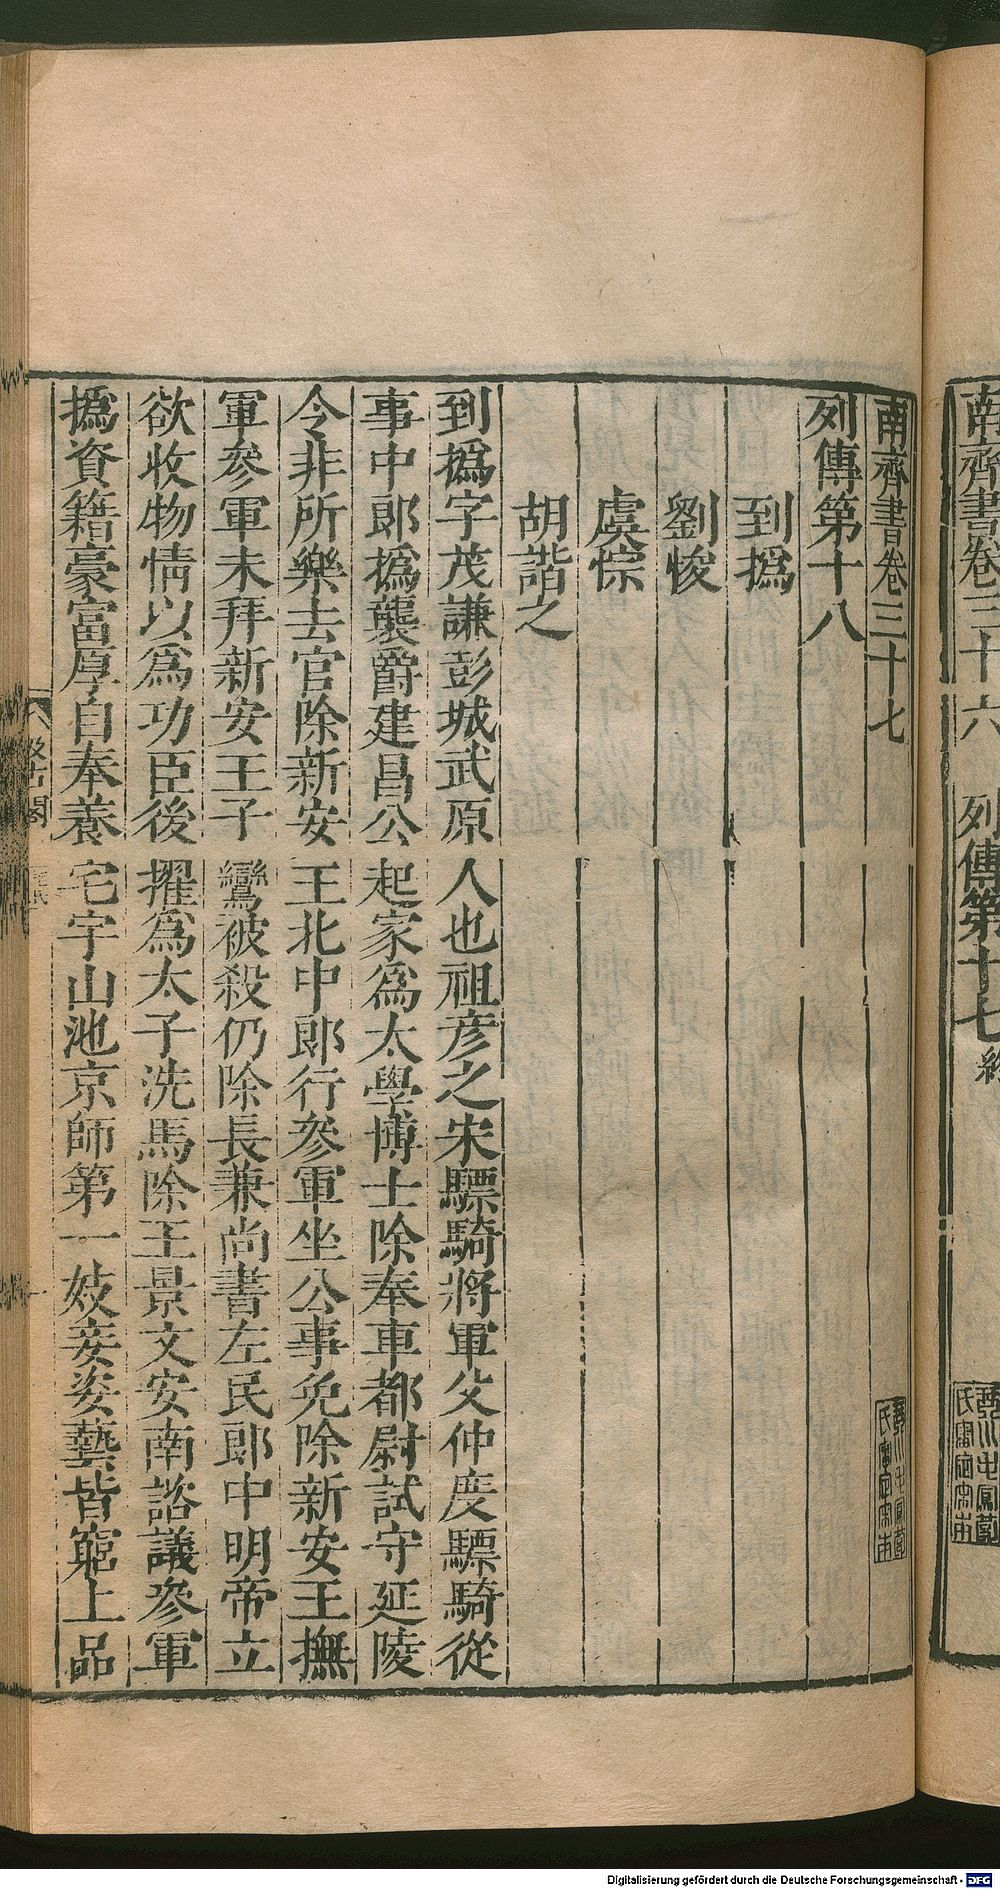 南齊書卷三十六 列傳第十七 終
南齊書卷三十七
列傳第十八
到撝
劉悛
虞悰
胡諧之
到撝字茂謙彭城武原人也祖彥之宋驃騎將軍父仲度驃騎從
事中郎撝襲爵建昌公起家爲太學博士除奉車都尉試守延陵
令非所樂去官除新安王北中郎行參軍坐公事免除新安王撫
軍參軍未拜新安王子鸞被殺仍除長兼尚書左民郎中明帝立
欲收物情以爲功臣後擢爲太子洗馬除王景文安南諮議參軍
撝資籍豪富厚自奉養宅宇山池京師第一妓妾姿藝皆窮上品
Digitalisierung gefördert durch die Deutsche Forschungsgemeinschaft - DFG